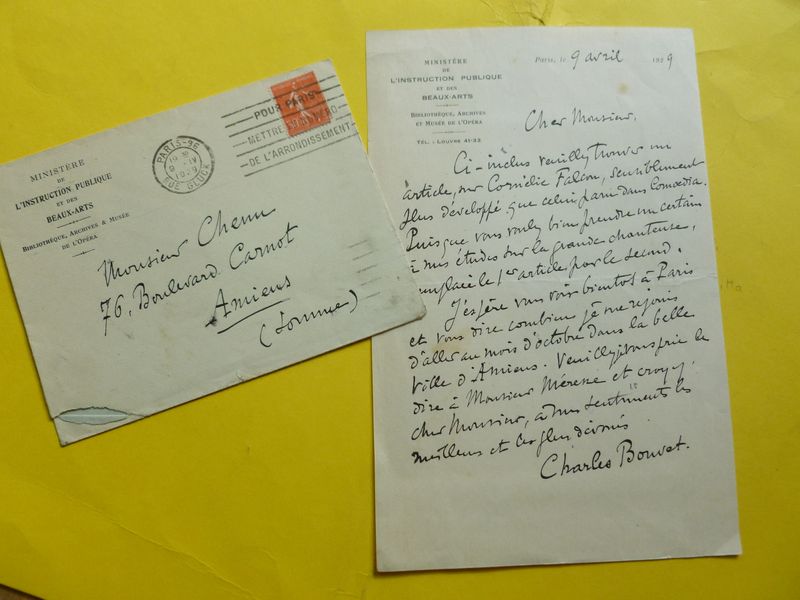 MINISTÈRE
DE
L'INSTRUCTION PUBLIQUE
ET DES
BEAUX-ARTS
BIBLIOTHÈQUE, ARCHIVES & MUSÉE
DE L'OPÉRA
PARIS-96
RUE GLUCK
POUR PARIS
METTRE NUMÉRO
DE L'ARRONDISSEMENT
Monsieur Chenu
76, Boulevard Carnot
Amiens
(Somme)
MINISTÈRE
DE
L'INSTRUCTION PUBLIQUE
ET DES
BEAUX-ARTS
BIBLIOTHÈQUE, ARCHIVES
ET MUSÉE DE L'OPÉRA
TÉL. : LOUVRE 41-32
Paris, le 9 avril 1929
Cher Monsieur,
Ci-inclus veuillez trouver un
article, sur Cornélie Falcon, sensiblement
plus développé que celui paru dans Comoedia.
Puisque vous voulez bien prendre un certain
à mes études sur la grande chanteuse,
remplacez le 1er article par le second.
J'espère vous voir bientôt à Paris
et vous dire combien je me réjouis
d'aller au mois d'octobre dans la belle
ville d'Amiens. Veuillez, je vous prie le
dire à Monsieur et croyez,
cher Monsieur, à mes sentiments les
meilleurs et les plus dévoués
Charles Bouvet.